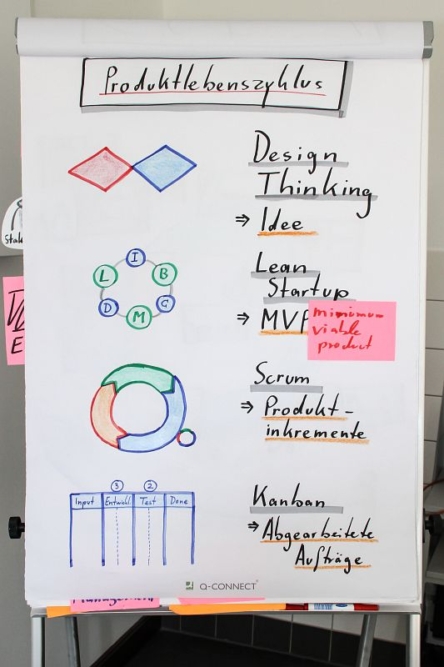 Produktlebenszyklus
Design
Thinking
⇒ Idee
I
L B
D C
M
Lean
Startup
⇒ MVP
minimum
viable
product
Scrum
⇒ Produkt-
inkremente
3 2
Input Entwickl Test Done
Kanban
⇒ Abgearbeitete
Aufträge
Q-CONNECT
Management